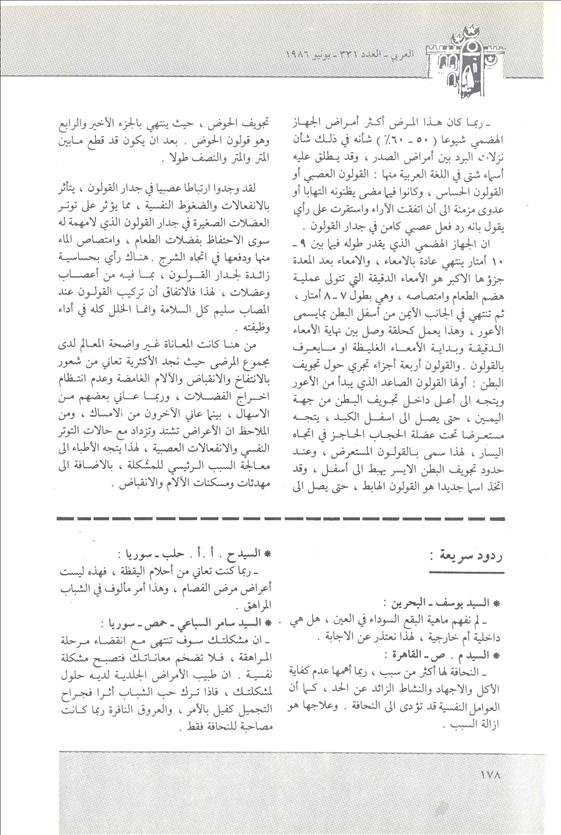 العربي ـ العدد ٣٣١ ـ يونيو ١٩٨٦
ـ ربما كان هذا المرض أكثر أمراض الجهاز
الهضمي شيوعا ( ٥٠ - ٦٠٪ ) شأنه في ذلك شأن
نزلات البرد بين أمراض الصدر ، وقد يطلق عليه
أسماء شتى في اللغة العربية منها : القولون العصبي أو
القولون الحساس ، وكانوا فيما مضى يظنونه التهابا أو
عدوى مزمنة الى أن اتفقت الآراء واستقرت على رأي
يقول بانه رد فعل عصبي كامن في جدار القولون .
ان الجهاز الهضمي الذي يقدر طوله فيما بين ٩ ـ
١٠ أمتار ينتهي عادة بالامعاء ، والامعاء بعد المعدة
جزؤها الاكبر هو الأمعاء الدقيقة التي تتولى عملية
هضم الطعام وامتصاصه ، وهي بطول ٧ ـ ٨ أمتار ،
ثم تنتهي في الجانب الأيمن من أسفل البطن بمايسمى
الأعور ، وهذا يعمل كحلقة وصل بين نهاية الأمعاء
الدقيقة وبداية الأمعاء الغليظة او مايعرف
بالقولون . والقولون أربعة أجزاء تجري حول تجويف
البطن : أولها القولون الصاعد الذي يبدأ من الأعور
ويتجه الى أعلى داخل تجويف البطن من جهة
اليمين ، حتى يصل الى اسفل الكبد ، يتجه
مستعرضا تحت عضلة الحجاب الحاجز في اتجاه
اليسار ، لهذا سمى بالقولون المستعرض ، وعند
حدود تجويف البطن الايسر يهبط الى أسفل ، وقد
اتخذ اسما جديدا هو القولون الهابط ، حتى يصل الى
تجويف الحوض ، حيث ينتهي بالجزء الأخير والرابع
وهو قولون الحوض . بعد ان يكون قد قطع مابين
المتر والمتر والنصف طولا .
لقد وجدوا ارتباطا عصبيا في جدار القولون ، يتأثر
بالانفعالات والضغوط النفسية ، مما يؤثر على توتر
العضلات الصغيرة في جدار القولون الذي لامهمة له
سوى الاحتفاظ بفضلات الطعام ، وامتصاص الماء
منها ودفعها في اتجاه الشرج . هناك رأي بحساسية
زائدة لجدار القولون ، بما فيه من أعصاب
وعضلات ، لهذا فالاتفاق أن تركيب القولون عند
المصاب سليم كل السلامة وانما الخلل كله في أداء
وظيفته .
من هنا كانت المعاناة غير واضحة المعالم لدى
مجموع المرضى حيث نجد الأكثرية تعاني من شعور
بالانتفاخ والانقباض والآلام الغامضة وعدم انتظام
اخراج الفضلات ، وربما عاني بعضهم من
الاسهال ، بينما عاني الآخرون من الامساك ، ومن
الملاحظ ان الأعراض تشتد وتزداد مع حالات التوتر
النفسي والانفعالات العصبية ، لهذا يتجه الأطباء الى
معالجة السبب الرئيسي للمشكلة ، بالاضافة الى
مهدئات ومسكنات الآلام والانقباض .
ردود سريعة :
* السيد يوسف ـ البحرين :
ـ لم نفهم ماهية البقع السوداء في العين ، هل هي
داخلية أم خارجية ، لهذا نعتذر عن الاجابة .
* السيد م . ص ـ القاهرة :
ـ النحافة لها أكثر من سبب ، ربما أهمها عدم كفاية
الأكل والاجهاد والنشاط الزائد عن الحد ، كما أن
العوامل النفسية قد تؤدى الى النحافة . وعلاجها هو
ازالة السبب .
* السيد ح . أ . أ . حلب ـ سوريا :
ـ ربما كنت تعاني من أحلام اليقظة ، فهذه ليست
أعراض مرض الفصام ، وهذا أمر مألوف في الشباب
المراهق .
* السيد سامر السباعي ـ حمص ـ سوريا :
ـ ان مشكلتك سوف تنتهى مع انقضاء مرحلة
المراهقة ، فلا تضخم معاناتك فتصبح مشكلة
نفسية . ان طبيب الأمراض الجلدية لديه حلول
لمشكلتك ، فاذا ترك حب الشباب أثرا فجراح
التجميل كفيل بالأمر ، والعروق النافرة ربما كانت
مصاحبة للنحافة فقط .
١٧٨